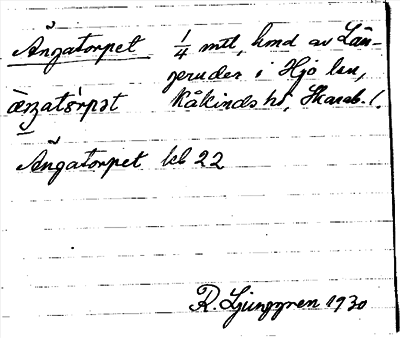 Ängatorpet 1/4 mtl, hmd av Län-
jeruder i Hjo lsn,
Kåkinds hd, Skarab. l.
Ängatorpet kb 22
R. Ljunggren 1930